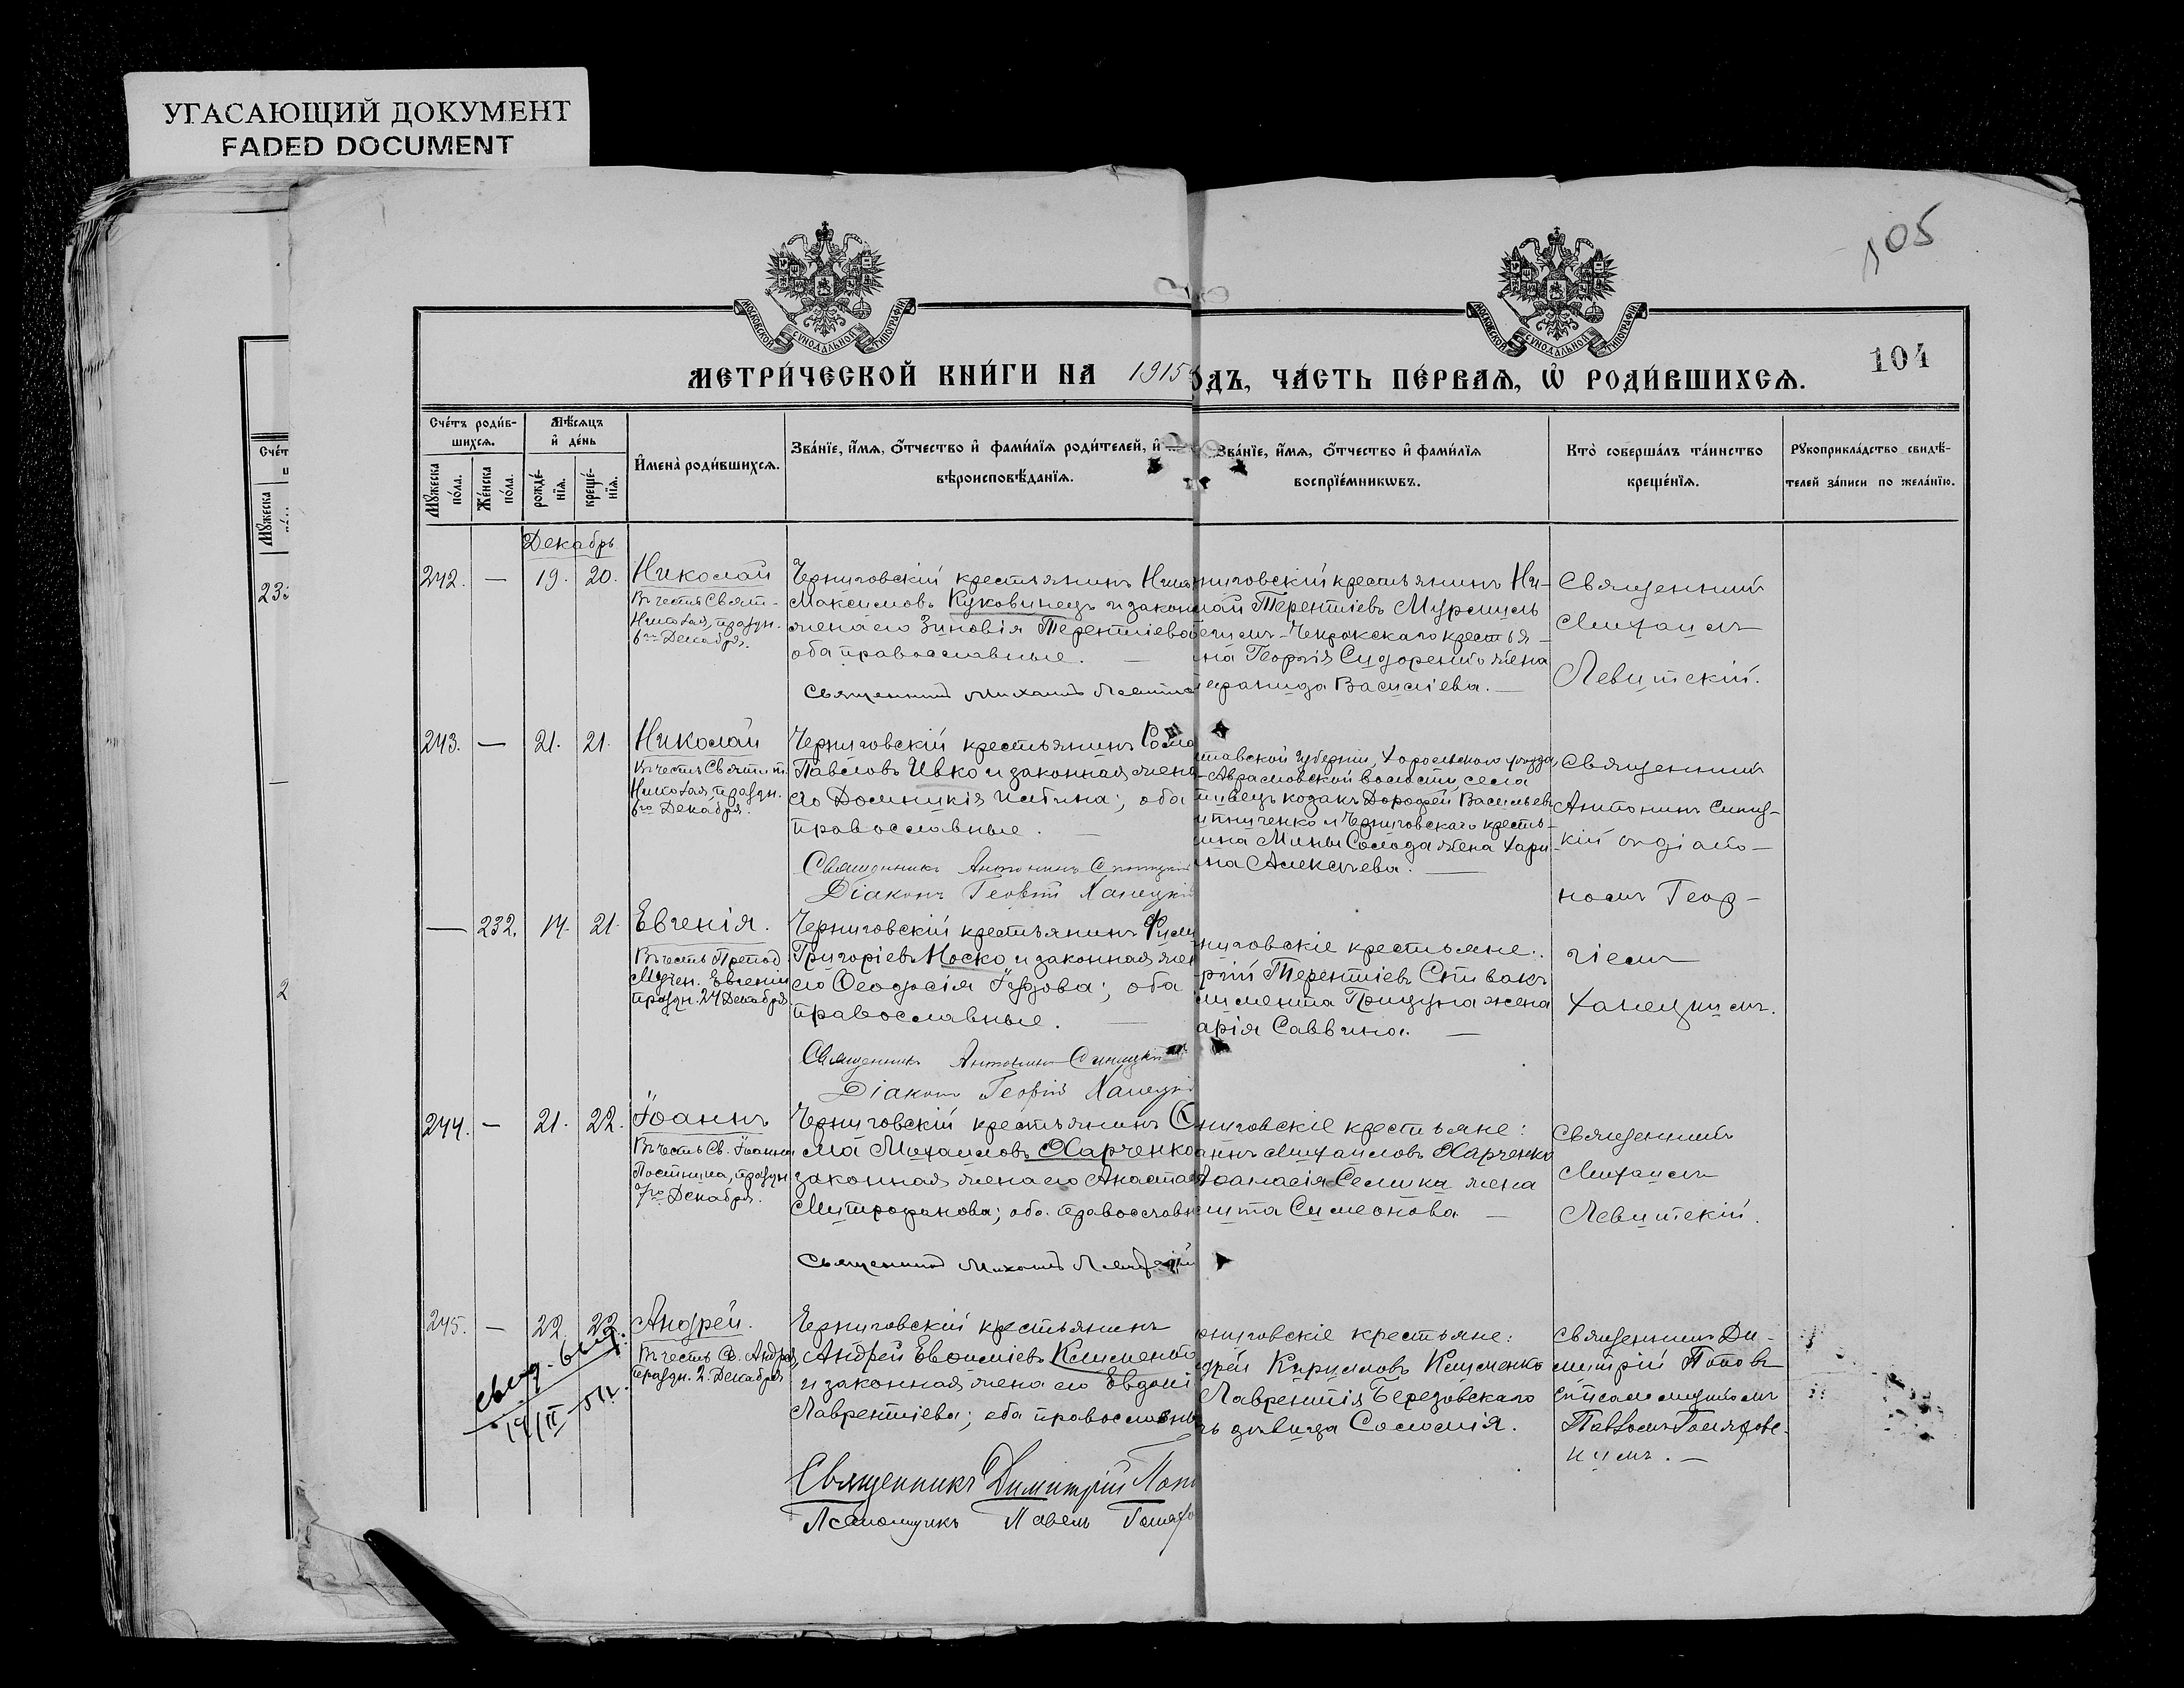 УГАСАЮЩИЙ ДОКУМЕНТ
FADED DOCUMENT
105
104
МОСКОВСКОЙ СѴНОДАЛЬНОЙ ТИПОГРАФІИ
МОСКОВСКОЙ СѴНОДАЛЬНОЙ ТИПОГРАФІИ
МЕТРИ́ЧЕСКОЙ КНИ́ГИ НА 1915
ОДЪ, ЧА́СТЬ ПЕ́РВАѦ, Ѽ РОДИ́ВШИХСѦ.
Сче́тъ роди́в-
шихсѧ.
Мѣ́сѧцъ
и҆ де́нь
Мꙋ́жеска
по́ла.
Же́нска
по́ла.
рожде́-
нїѧ.
креще́-
нїѧ.
И҆мена̀ роди́вшихсѧ.
Зва́нїе, и҆́мѧ, ѻ҆́тчество и҆ фами́лїѧ роди́телей, и҆
вѣроисповѣ́данїѧ.
Зва́нїе, и҆́мѧ, ѻ҆́тчество и҆ фами́лїѧ
воспрїе́мникѡвъ.
Кто̀ соверша́лъ та́инство
креще́нїѧ.
Рꙋкоприкла́дство свидѣ́-
телей за́писи по жела́нїю.
Декабрь
242. — 19. 20. Николай
Въ честь Свят.
Николая, праздн.
6го Декабря.
Черниговскій крестьянинъ Нико
Максимовъ Куковинецъ и закон
жена его Зиновія Терентіева
оба православные. —
Священникъ Михаилъ Левит
ниговскій крестьянинъ Ни-
лай Терентіевъ Мурмуль
Чекрокскаго крестья-
на Георгія Сидоренко жена
Василіева. —
Священникъ
Михаилъ
Левитскій.
243. — 21. 21. Николай
Въ честь Святит.
Николая, праздн.
6го Декабря.
Черниговскій крестьянинъ
Павловъ Ивко и законная жена
его Домникія Ильина; оба
православные. —
Священникъ Антонинъ Синицкій
Діаконъ Георгій Ханецкій
тавской губерніи, Хорольскаго уѣзда,
волости, села
козакъ Дорофей Васильевъ
и Черниговскаго кресть-
Мины Солода жена Хари-
на Алексѣева. —
Священникъ
Антонинъ Синиц-
кій съ діако-
номъ Геор-
гіемъ
Ханецкимъ.
— 232. 14. 21. Евгенія.
Въ честь Препод.
Мучен. Евгеніи
праздн. 24 Декабря
Черниговскій крестьянинъ Фили
Григоріевъ Носко и законная жен
его Ѳеодосія Іудова; оба
православные. —
Священникъ Антонинъ Синицкій
Діаконъ Георгій Ханецкі
ниговскіе крестьяне:
рій Терентіевъ Спивакъ
лимента Грицуна жена
арія Саввина. —
244. — 21. 22. Іоаннъ
Въ честь Св. Іоанна
Постника, праздн.
Декабря.
Черниговскій крестьянинъ
ма Михаиловъ Харченко
законная жена его Анаста
Митрофанова; оба православн
Священникъ Михаилъ Левитскій
ниговскіе крестьяне:
аннъ Михаиловъ Харченко
Аѳанасія Семика жена
Симеонова —
Священникъ
Михаилъ
Левитскій.
245. — 22. 22. Андрей.
Въ честь Св. Андрея,
праздн. 2. Декабря
14/II
Черниговскій крестьянинъ
Андрей Евѳиміевъ Клименко
и законная жена его Евдокі
Лаврентіева; оба православн
Священникъ Димитрій Попо
Псаломщикъ Павелъ
рниговскіе крестьяне:
дрей Кирилловъ Клименко
Лаврентія Березовскаго
дѣвица Соломія.
Священникъ Ди-
митрій Поповъ
съ псаломщикомъ
Павломъ
кимъ. —